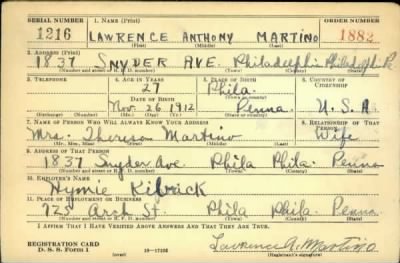 SERIAL NUMBER 1. NAME (Print) ORDER NUMBER
1216 LAWRENCE ANTHONY MARTINO 1882
(First) (Middle) (Last)
2. ADDRESS (Print)
1837 SNYDER AVE. Philadelphia Philadelph P
(Number and street or R. F. D. number) (Town) (County) (State)
3. TELEPHONE 4. AGE IN YEARS 5. PLACE OF BIRTH 6. COUNTRY OF CITIZENSHIP
27 Phila.
DATE OF BIRTH (Town or county)
Nov. 26 1912 Penna. U. S. A.
(Exchange) (Number) (Mo.) (Day) (Yr.) (State or country)
7. NAME OF PERSON WHO WILL ALWAYS KNOW YOUR ADDRESS 8. RELATIONSHIP OF THAT PERSON
Mrs. Martino Wife
(Mr., Mrs., Miss) (First) (Middle) (Last)
9. ADDRESS OF THAT PERSON
1837 Snyder Ave Phila Phila. Penna
(Number and street or R. F. D. number) (Town) (County) (State)
10. EMPLOYER'S NAME
Hymie
11. PLACE OF EMPLOYMENT OR BUSINESS
725 Arch St. Phila Phila. Penna.
(Number and street or R. F. D. number) (Town) (County) (State)
I AFFIRM THAT I HAVE VERIFIED ABOVE ANSWERS AND THAT THEY ARE TRUE.
REGISTRATION CARD
D. S. S. Form 1 (over) 16—17105 Lawrence A. Martino
(Registrant's signature)